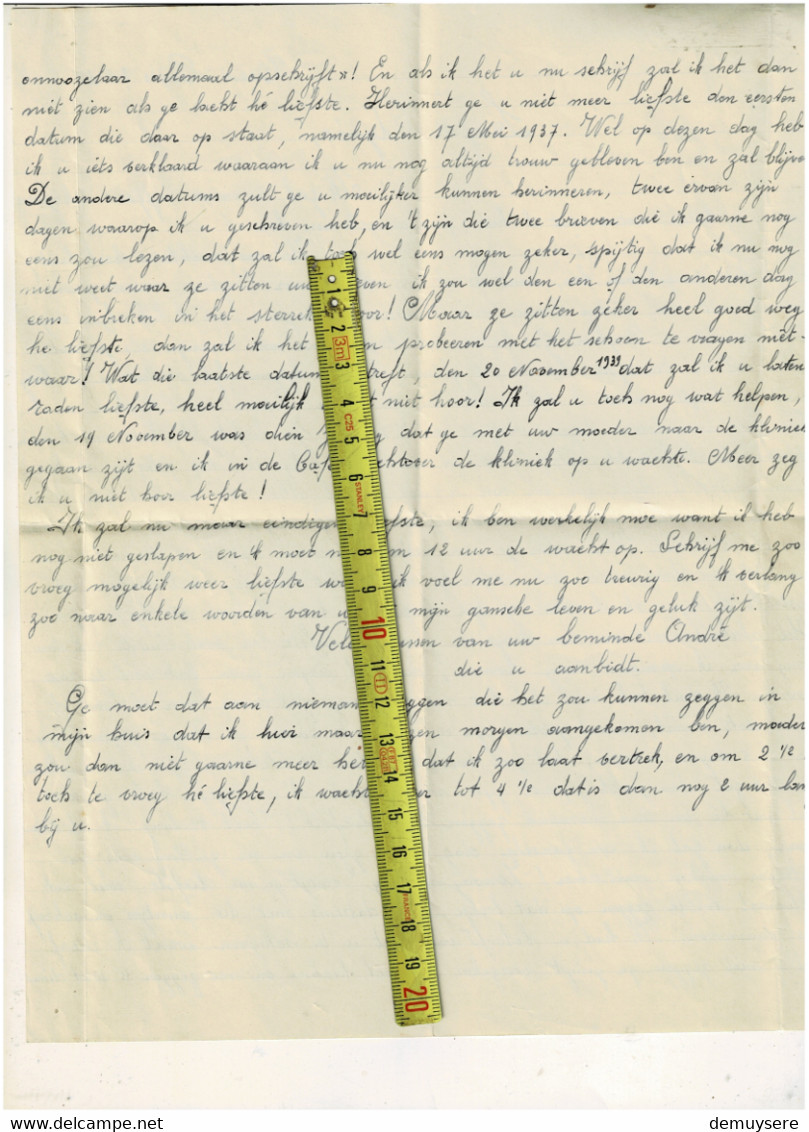 onnoozelaar allemaal opschrijft! En als ik het u nu schrijf zal ik het dan
niet zien als ge lacht hé liefste. Herinnert ge u niet meer liefste den eersten
datum die daar op staat, namelijk den 17 Mei 1937. Wel op dezen dag heb
ik u iets verklaard waaraan ik u nu nog altijd trouw gebleven ben en zal blijve
De andere datums zult ge u moeilijker kunnen herinneren, twee ervan zijn
dagen waarop ik u geschreven heb, en 't zijn die twee brieven die ik gaarne nog
eens zou lezen, dat zal ik toch wel eens mogen zeker, spijtig dat ik nu nog
niet weet waar ze zitten ik zou wel den een of den anderen dag
eens inbreken in het ! Maar ze zitten zeker heel goed weg
he liefste, dan zal ik het probeeren met het schoon te vragen niet-
waar! Wat die laatste datum treft, den 20 November 1939 dat zal ik u laten
raden liefste, heel moeilijk niet hoor! Ik zal u toch nog wat helpen,
den 19 November was dien dat ge met uw moeder naar de kliniek
gegaan zijt en ik in de Café rechtover de kliniek op u wachtte. Meer zeg
ik u niet hoor liefste!
Ik zal nu maar eindigen liefste, ik ben werkelijk moe want ik heb
nog niet geslapen en ik moet 12 uur de wacht op. Schrijf me zoo
vroeg mogelijk weer liefste ik voel me nu zoo treurig en ik verlang
zoo naar enkele woorden van u mijn gansche leven en geluk zijt.
Vele van uw beminde André
die u aanbidt.
Ge moet dat aan niemand zeggen die het zou kunnen zeggen in
mijn huis dat ik hier maar morgen aangekomen ben, moeder
zou dan niet gaarne meer dat ik zoo laat vertrek, en om 2 ½
toch te vroeg hé liefste, ik wacht tot 4 ½ dat is dan nog 2 uur lan
bij u.
1
2
3m
3
4
C25
5
6
STANLEY
7
8
9
10
11
12
13
14
15
16
17
FRANCE
18
19
20
Delcampe.net
demuysere